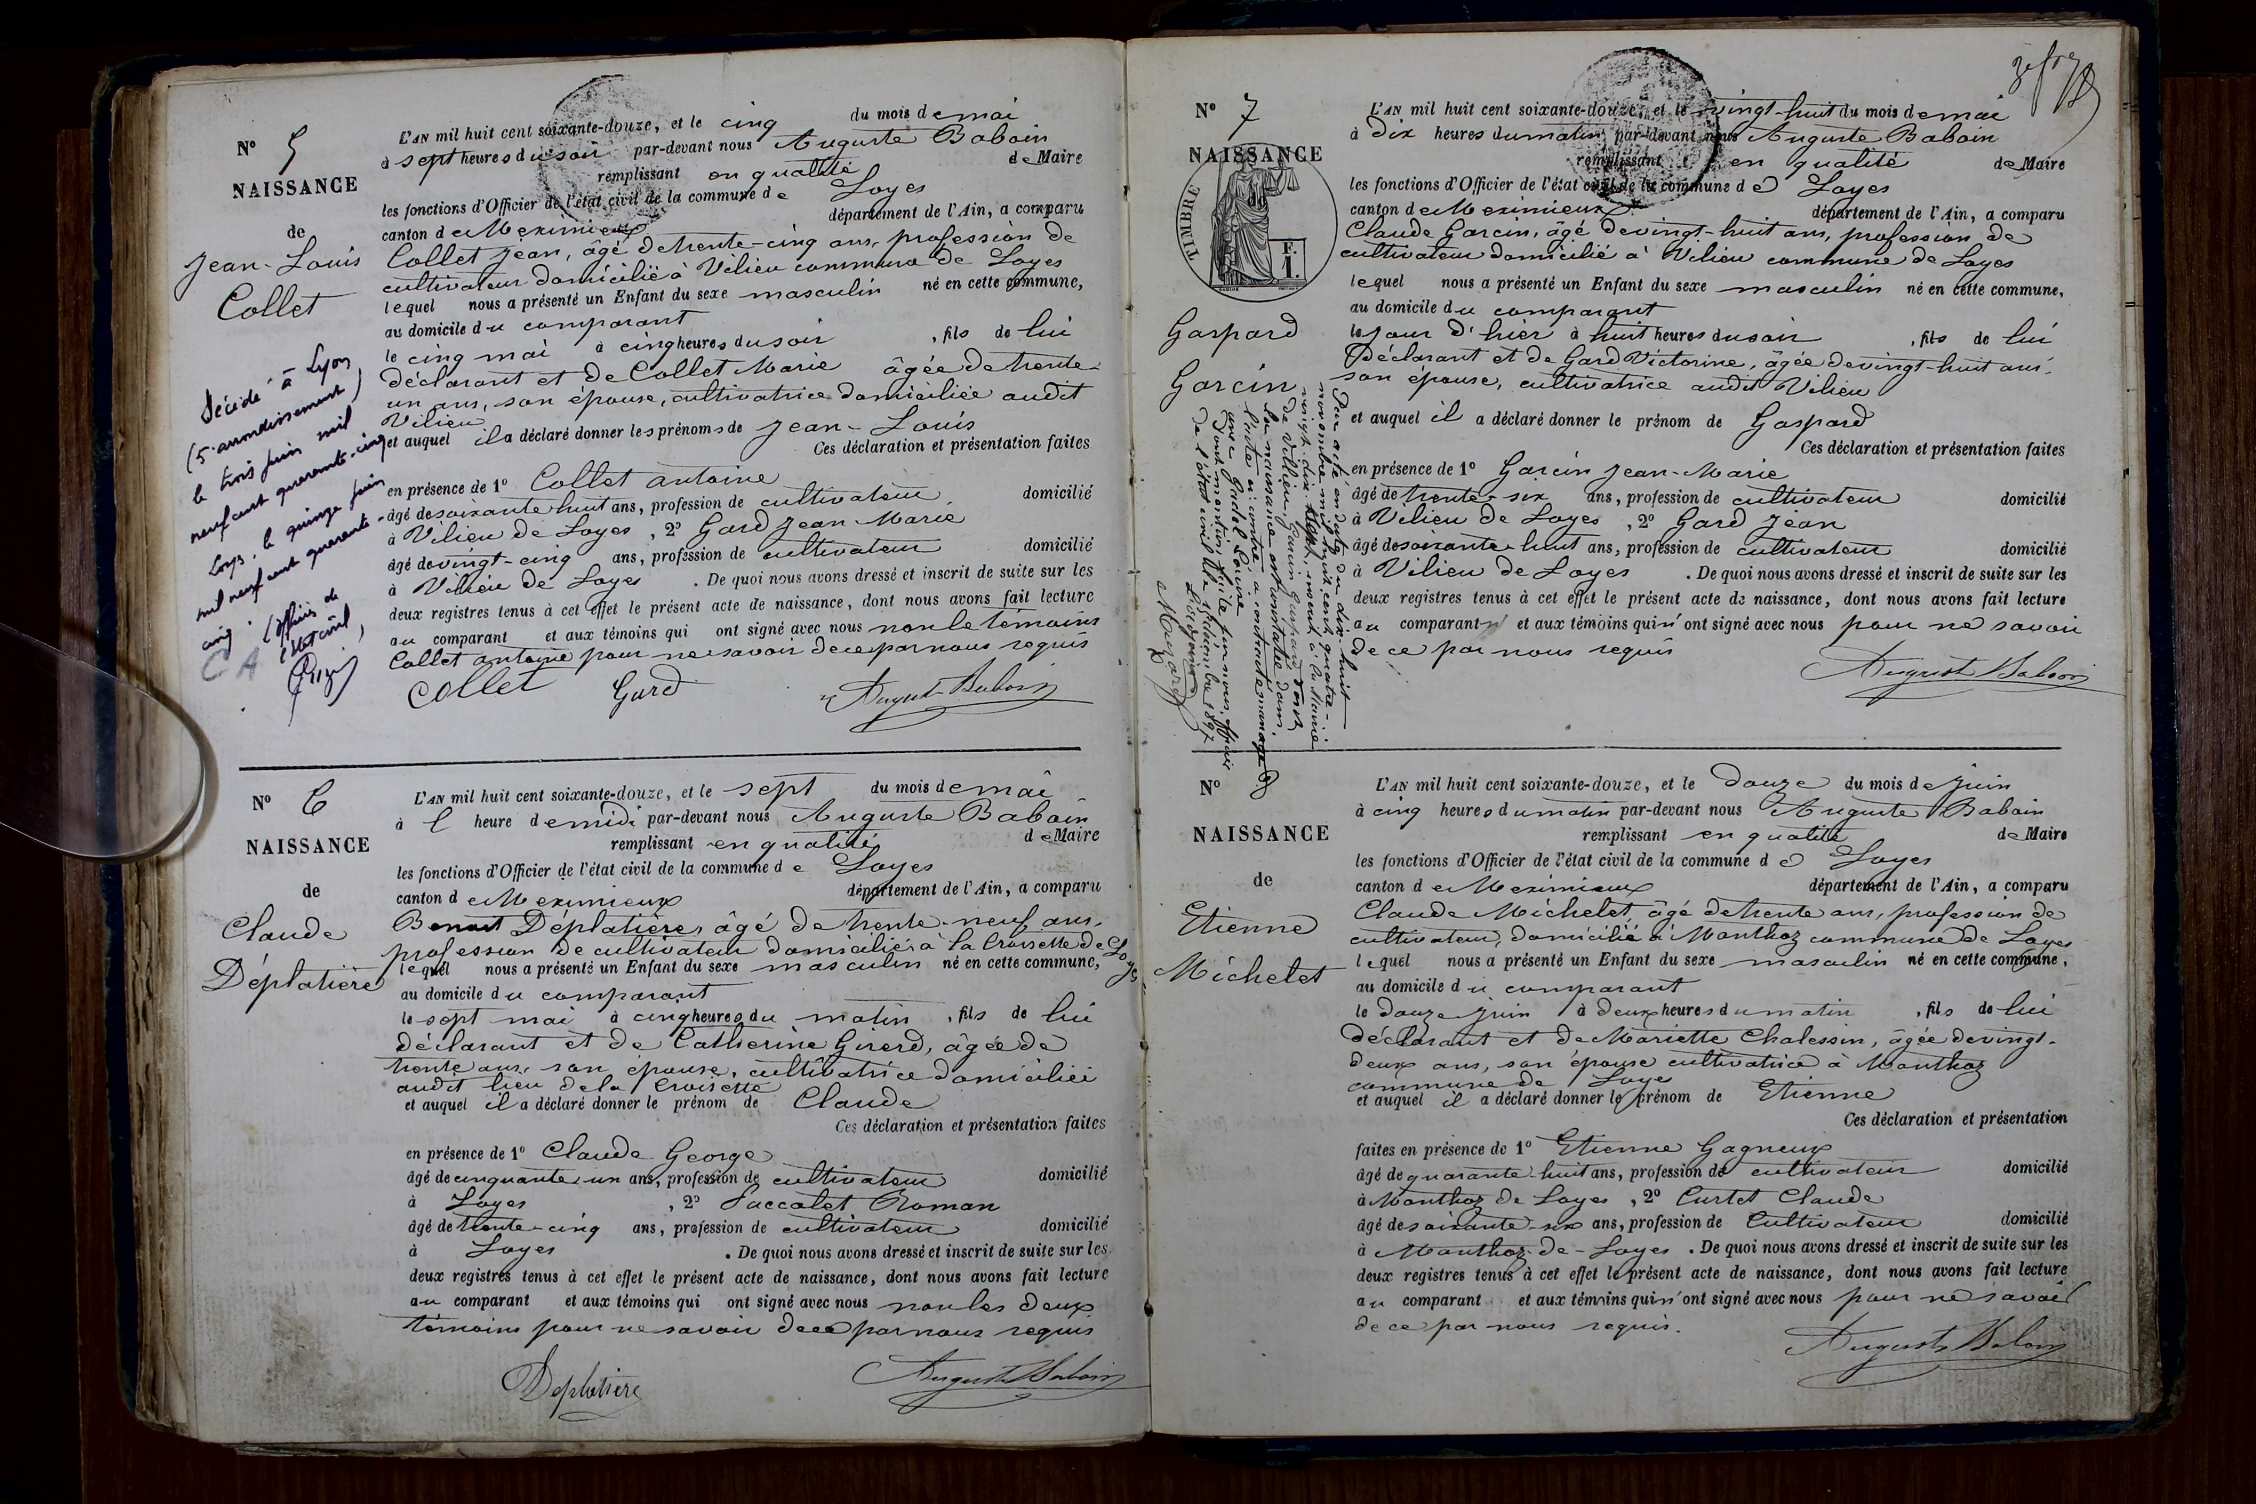 N° 5
NAISSANCE
de
Jean-Louis
Collet
Décédé à Lyon
(5e arrondissement)
le trois juin mil
neuf cent quarante-cinq
Loyes, le quinze juin
mil neuf cent quarante-
cinq.
L'officier de
l'état civil,
CA
L'AN mil huit cent soixante-douze, et le cinq du mois de mai
à sept heures du soir par-devant nous Auguste Baboin
remplissant en qualité de Maire
les fonctions d'Officier de l'état civil de la commune de Loyes
canton de Meximieux département de l'Ain, a comparu
Collet Jean, âgé de trente-cinq ans, profession de
cultivateur domicilié à Vilieu commune de Loyes
lequel nous a présenté un Enfant du sexe masculin né en cette commune,
au domicile du comparant
le cinq mai à cinq heures du soir, fils de lui
déclarant et de Collet Marie âgée de trente-
un ans, son épouse, cultivatrice domiciliée audit
Vilieu
et auquel il a déclaré donner les prénoms de Jean-Louis
Ces déclaration et présentation faites
en présence de 1° Collet antoine
âgé de soixante huit ans, profession de cultivateur domicilié
à Vilieu de Loyes, 2° Gard Jean Marie
âgé de vingt-cinq ans, profession de cultivateur domicilié
à Vilieu de Loyes. De quoi nous avons dressé et inscrit de suite sur les
deux registres tenus à cet effet le présent acte de naissance, dont nous avons fait lecture
au comparant et aux témoins qui ont signé avec nous non le témoins
Collet antoine pour ne savoir de ce par nous requis
Collet Gard Auguste Baboin
N° 6
NAISSANCE
de
Claude
Déplatière
L'AN mil huit cent soixante-douze, et le sept du mois de mai
à 1 heure de midi par-devant nous Auguste Baboin
remplissant en qualité de Maire
les fonctions d'Officier de l'état civil de la commune de Loyes
canton de Meximieux département de l'Ain, a comparu
Benoit Déplatière, âgé de trente-neuf ans,
profession de cultivateur domicilié à la Croisette de Loyes
lequel nous a présenté un Enfant du sexe masculin né en cette commune,
au domicile du comparant
le sept mai à cinq heures du matin, fils de lui
déclarant et de Catherine Girerd, âgée de
trente ans, son épouse, cultivatrice domiciliée
audit lieu de la Croisette
et auquel il a déclaré donner le prénom de Claude
Ces déclaration et présentation faites
en présence de 1° Claude George
âgé de cinquante-un ans, profession de cultivateur domicilié
à Loyes, 2° Paccalet Roman
âgé de trente-cinq ans, profession de cultivateur domicilié
à Loyes. De quoi nous avons dressé et inscrit de suite sur les
deux registres tenus à cet effet le présent acte de naissance, dont nous avons fait lecture
au comparant et aux témoins qui ont signé avec nous non les deux
témoins pour ne savoir de ce par nous requis
Deplatiere Auguste Baboin
N° 7
NAISSANCE
de
TIMBRE
F.
1.
Gaspard
Garcin
Par acte en date du dix-huit
novembre mil huit cent quatre-
vingt-dix-sept, inscrit à la Mairie
de Villieu, Garcin Gaspard dont
la naissance est constatée dans
l'acte ci-contre a contracté mariage
avec
Dont mention faite par nous, officier
de l'état civil le 1897
L'AN mil huit cent soixante-douze, et le vingt-huit du mois de mai
à Dix heures du matin par-devant nous Auguste Baboin
remplissant en qualité de Maire
les fonctions d'Officier de l'état civil de la commune de Loyes
canton de Meximieux département de l'Ain, a comparu
Claude Garcin, âgé de vingt-huit ans, profession de
cultivateur domicilié à Vilieu commune de Loyes
lequel nous a présenté un Enfant du sexe masculin né en cette commune,
au domicile du comparant
le jour d'hier à huit heures du soir, fils de lui
déclarant et de Gard Victorine, âgée de vingt-huit ans,
son épouse, cultivatrice audit Vilieu
et auquel il a déclaré donner le prénom de Gaspard
Ces déclaration et présentation faites
en présence de 1° Garcin Jean-Marie
âgé de trente-six ans, profession de cultivateur domicilié
à Vilieu de Loyes, 2° Gard Jean
âgé de soixante-huit ans, profession de cultivateur domicilié
à Vilieu de Loyes. De quoi nous avons dressé et inscrit de suite sur les
deux registres tenus à cet effet le présent acte de naissance, dont nous avons fait lecture
au comparant n' et aux témoins qui n'ont signé avec nous pour ne savoir
de ce par nous requis
Auguste Baboin
N° 8
NAISSANCE
de
Etienne
Michelet
L'AN mil huit cent soixante-douze, et le douze du mois de juin
à cinq heures du matin par-devant nous Auguste Baboin
remplissant en qualité de Maire
les fonctions d'Officier de l'état civil de la commune de Loyes
canton de Meximieux département de l'Ain, a comparu
Claude Michelet, âgé de trente ans, profession de
cultivateur, domicilié à Monthoz commune de Loyes
lequel nous a présenté un Enfant du sexe masculin né en cette commune,
au domicile du comparant
le douze juin à deux heures du matin, fils de lui
déclarant et de Mariette Chalessin, âgée de vingt-
deux ans, son épouse cultivatrice à Monthoz
commune de Loyes
et auquel il a déclaré donner le prénom de Etienne
Ces déclaration et présentation
faites en présence de 1° Etienne Gagneux
âgé de quarante-huit ans, profession de cultivateur domicilié
à Monthoz de Loyes, 2° Curtet Claude
âgé de soixante-six ans, profession de Cultivateur domicilié
à Monthoz-de-Loyes. De quoi nous avons dressé et inscrit de suite sur les
deux registres tenus à cet effet le présent acte de naissance, dont nous avons fait lecture
au comparant et aux témoins qui n'ont signé avec nous pour ne savoir
de ce par nous requis.
Auguste Baboin